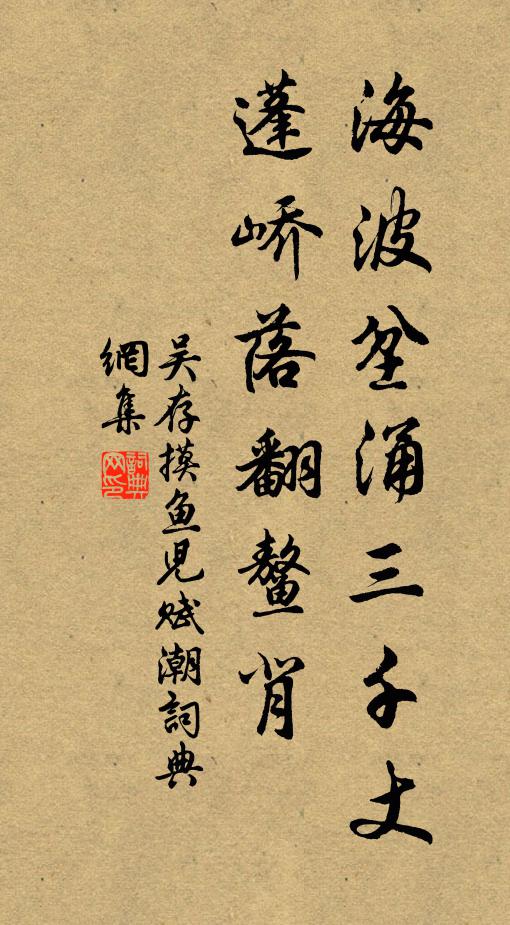 海波坌涌三千丈
蓬峤落翻鳌背
吴存摸鱼儿赋潮詞典
網集
詞典网印